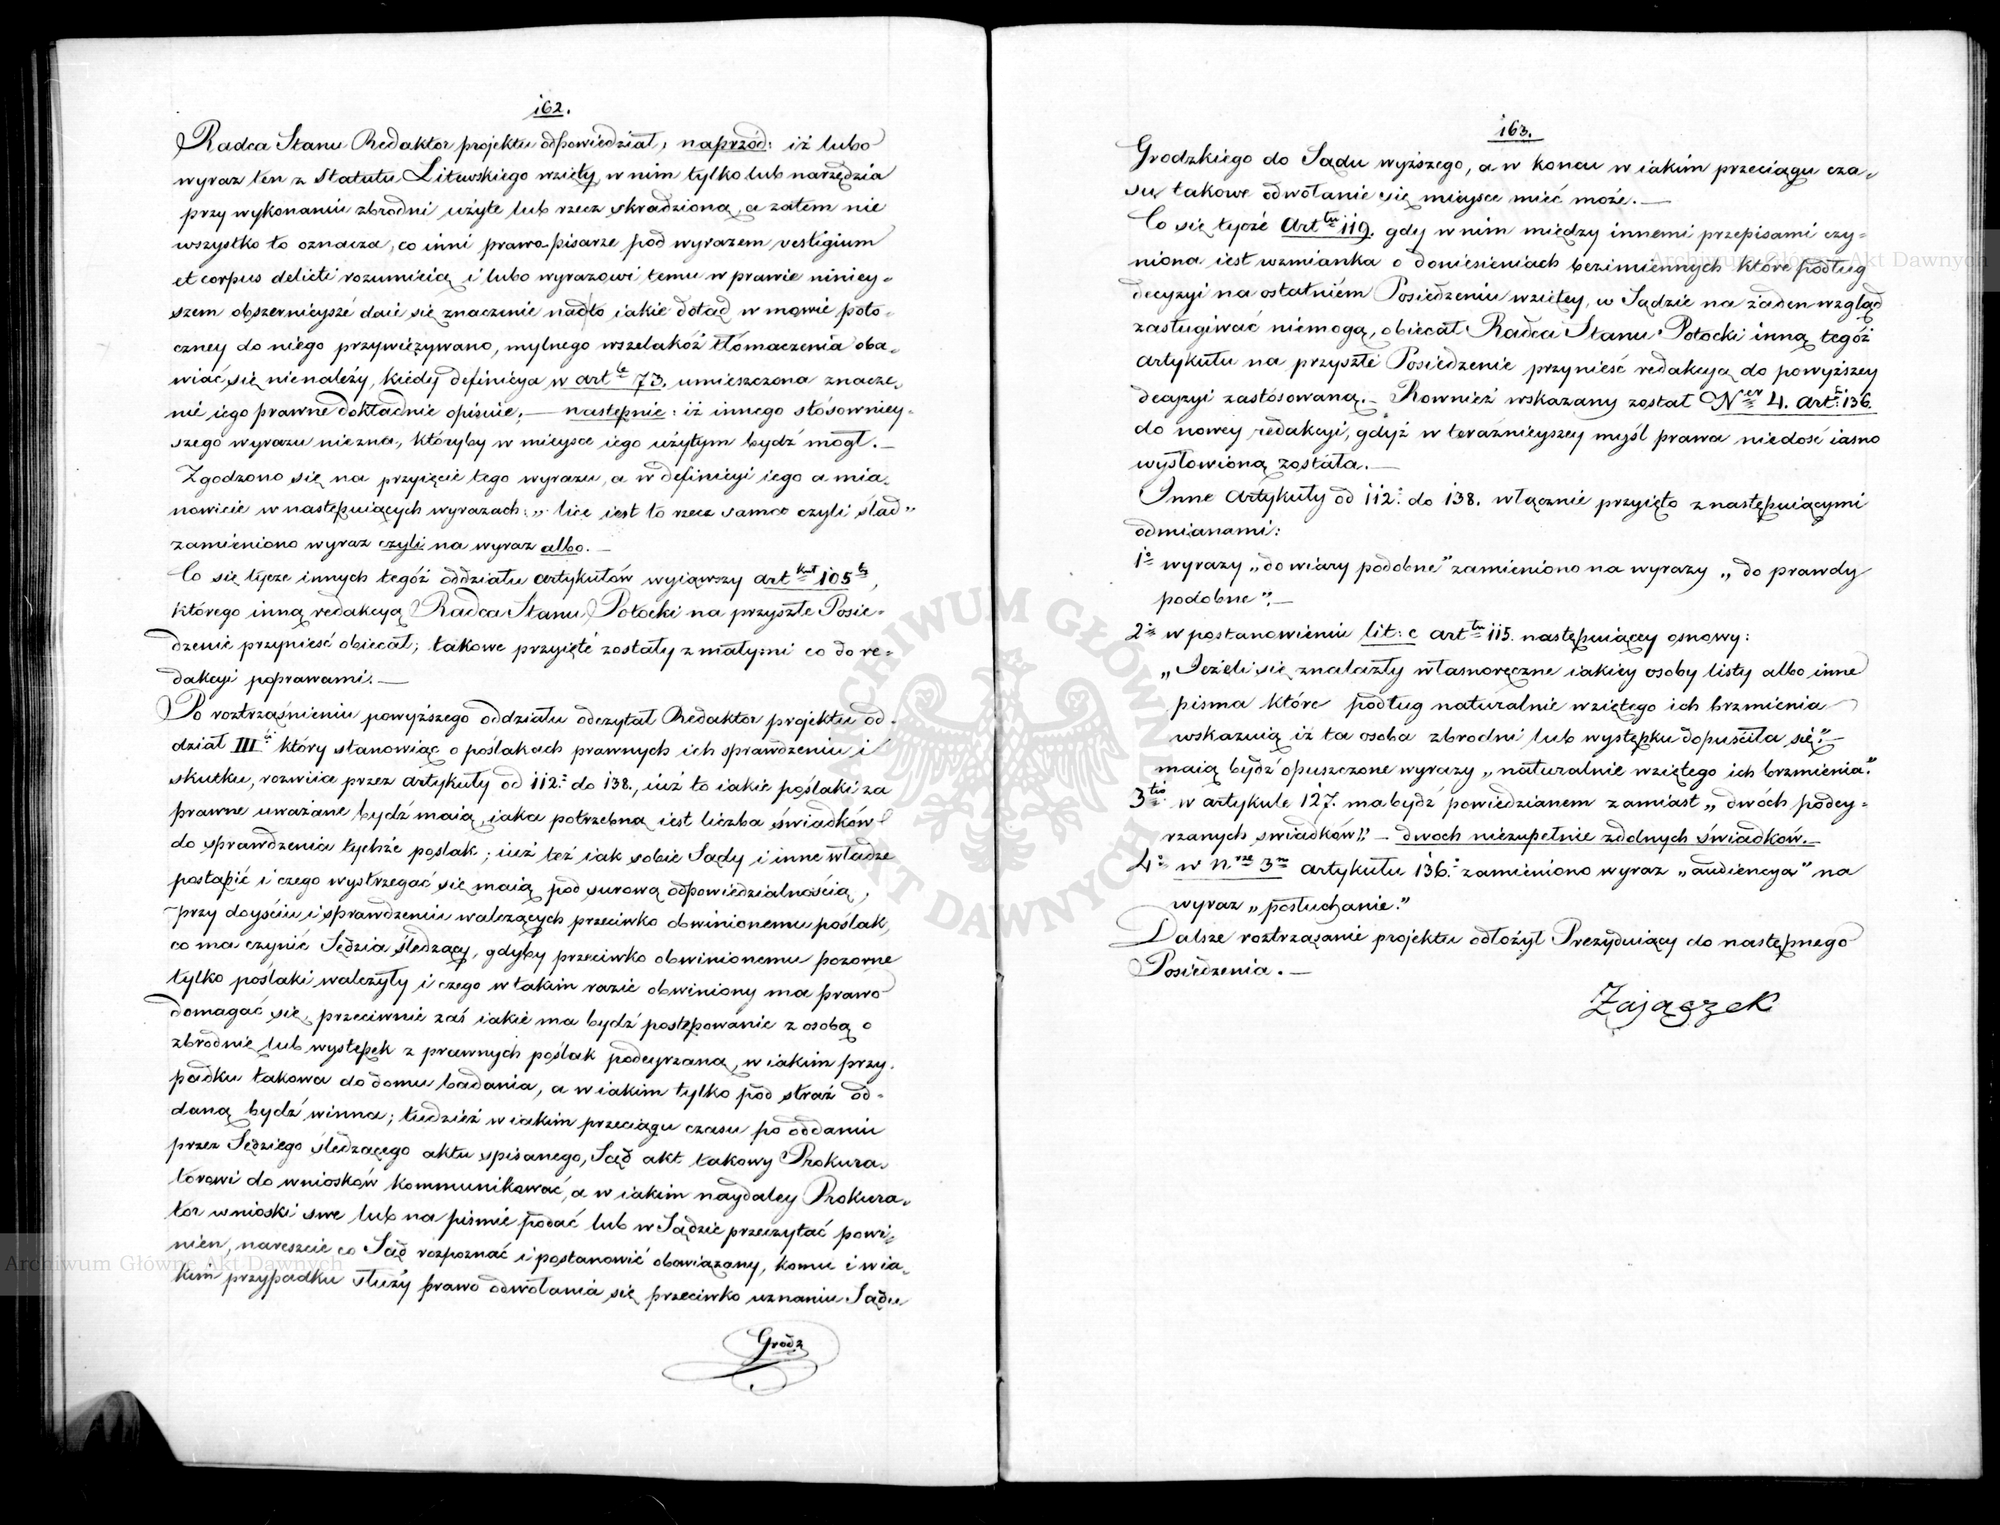 162.
Radca Stanu Redaktor projektu odpowiedział; naprzód: iż lubo
wyraz ten z Statutu Litewskiego wzięty, w nim tylko lub narzędzia
przy wykonaniu zbrodni użyte lub rzecz skradzioną, a zatem nie
wszystko to oznacza, co inni prawo-pisarze pod wyrazem vestigium
et corpus delicti rozumieią, i lubo wyrazowi temu w prawie niniey-
szem obszernieysze daie się znaczenie nadto iakie dotąd w mowie poto-
czney do niego przywięzywano, mylnego wszelakoż tłómaczenia oba-
wiać się nienależy, kiedy definicya w artle 73. umieszczona znacze-
nie iego prawne dokładnie opisuie; — następnie: iż innego stósowniey-
szego wyrazu niezna, któryby w mieysce iego użytym bydź mógł. —
Zgodzono się na przyięcie tego wyrazu, a w definicyi iego a mia-
nowicie w następuiących wyrazach: „lice iest to rzecz sama czyli ślad"
zamieniono wyraz czyli na wyraz albo. —
Co się tycze innych tegóż oddziału artykułów wyiąwszy artkuł 105ty,
którego inną redakcyą Radca Stanu Potocki na przyszłe Posie-
dzenie przynieść obiecał; takowe przyięte zostały z małymi co do re-
dakcyi poprawami. —
Po roztrząśnieniu powyższego oddziału odczytał Redaktor projektu od-
dział IIIci który stanowiąc o poślakach prawnych ich sprawdzeniu i
skutku, rozwiia przez artykuły od 112° do 138., iuż to iakie poślaki za
prawne uważane bydź maią, iaka potrzebna iest liczba świadków
do sprawdzenia tychże poślak; iuż też iak sobie Sądy i inne władze
postąpić i czego wystrzegać się maią pod surową odpowiedzialnością,
przy doyściu i sprawdzeniu walczących przeciwko obwinionemu poślak,
co ma czynić Sędzia śledzący, gdyby przeciwko obwinionemu pozorne
tylko poślaki walczyły i czego w takim razie obwiniony ma prawo
domagać się, przeciwnie zaś iakie ma bydź postępowanie z osobą o
zbrodnię lub występek z prawnych poślak podeyrzaną, w iakim przy-
padku takowa do domu badania, a w iakim tylko pod straż od-
daną bydź winna; tudzież w iakim przeciągu czasu po oddaniu
przez Sędziego śledzącego aktu spisanego, Sąd akt takowy Prokura-
torowi do wniosków kommunikować, a w iakim naydaley Prokura-
tor wnioski swe lub na piśmie podać lub w Sądzie przeczytać powi-
nien, nareszcie co Sąd rozpoznać i postanowić obowiązany, komu i w ia-
kim przypadku służy prawo odwołania się przeciwko uznaniu Sądu
Grodz
163.
Grodzkiego do Sądu wyższego, a w końcu w iakim przeciągu cza-
su takowe odwołanie się mieysce mieć może. —
Co się tycze Arttu 119. gdy w nim między innemi przepisami czy-
niona iest wzmianka o doniesieniach bezimiennych które podług
decyzyi na ostatniem Posiedzeniu wziętey, w Sądzie na żaden wzgląd
zasługiwać niemogą, obiecał Radca Stanu Potocki inną tegóż
artykułu na przyszłe Posiedzenie przynieść redakcyą do powyższey
decyzyi zastósowaną. – Rownież wskazany został Ner 4. Art: 136.
do nowey redakcyi, gdyż w teraźnieyszey myśl prawa niedość iasno
wysłowioną została. —
Inne Artykuły od 112° do 138. włącznie przyięto z następuiącymi
odmianami:
1° wyrazy „do wiary podobne" zamieniono na wyrazy „do prawdy
podobne". —
2° w postanowieniu lit: c arttu 115. następuiącey osnowy:
„Jeżeli się znalazły własnoręczne iakiey osoby listy albo inne
pisma które podług naturalnie wziętego ich brzmienia
wskazuią iż ta osoba zbrodni lub występku dopuściła się" —
maią bydź opuszczone wyrazy „naturalnie wziętego ich brzmienia."
3tio w artykule 127. ma bydź powiedzianem zamiast „dwóch podey-
rzanych świadków", – dwoch niezupełnie zdolnych świadków. —
4° w N.rze 3m artykułu 136.° zamieniono wyraz „audiencya" na
wyraz „posłuchanie."
Dalsze roztrząsanie projektu odłożył Prezyduiący do następnego
Posiedzenia. —
Zajączek
Archiwum Główne Akt Dawnych
Archiwum Główne Akt Dawnych
ARCHIWUM GŁÓWNE AKT DAWNYCH